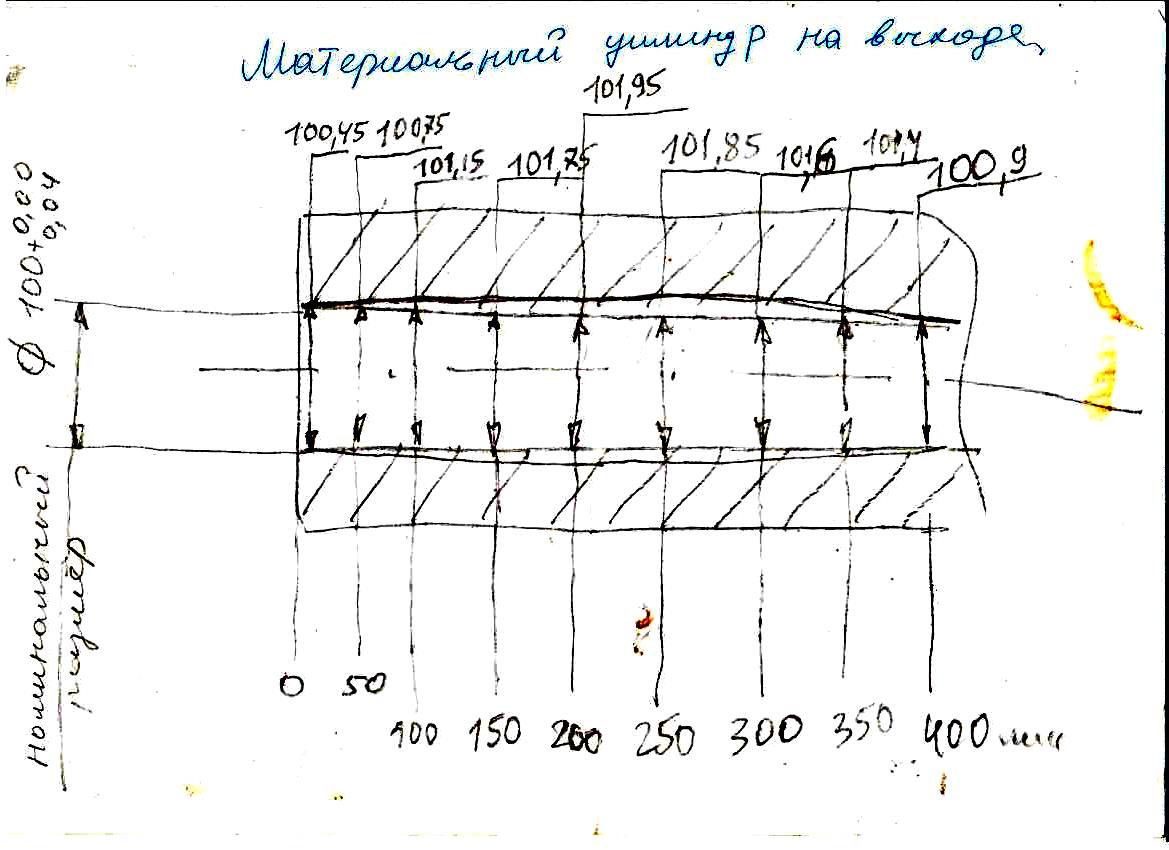 Материальный цилиндр на выходе
101,95
100,45 100,75
101,15 101,75
101,85 101,6 101,4
100,9
Ø 100+0,00
0,04
Номинальный
размер
0 50
100 150 200 250 300 350 400 мм